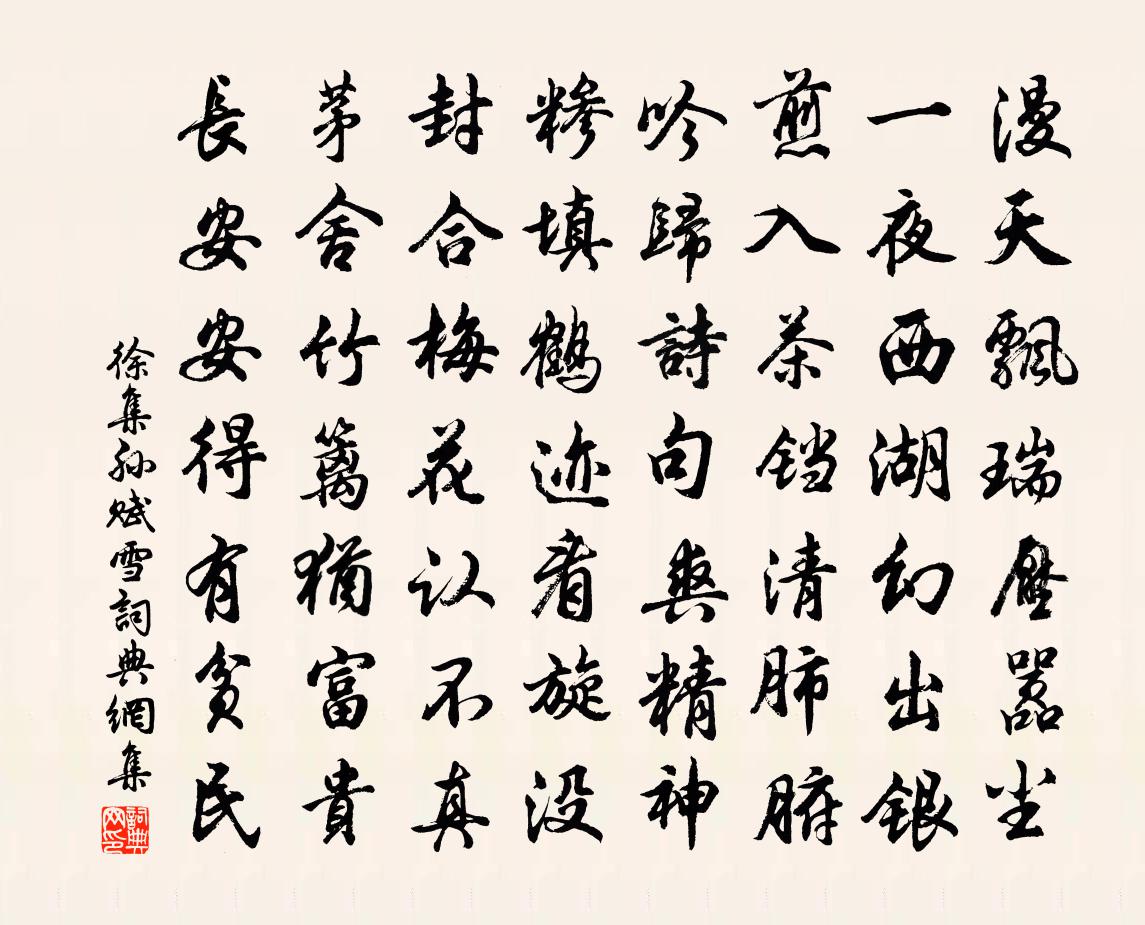 漫天飄瑞壓嚣尘
一夜西湖幻出銀
煎入茶铛清肺腑
吟歸詩句爽精神
糁填鶴迹看旋没
封合梅花认不真
茅舍竹籬猶富貴
長安安得有貧民
徐集孙赋雪詞典網集
詞典网印